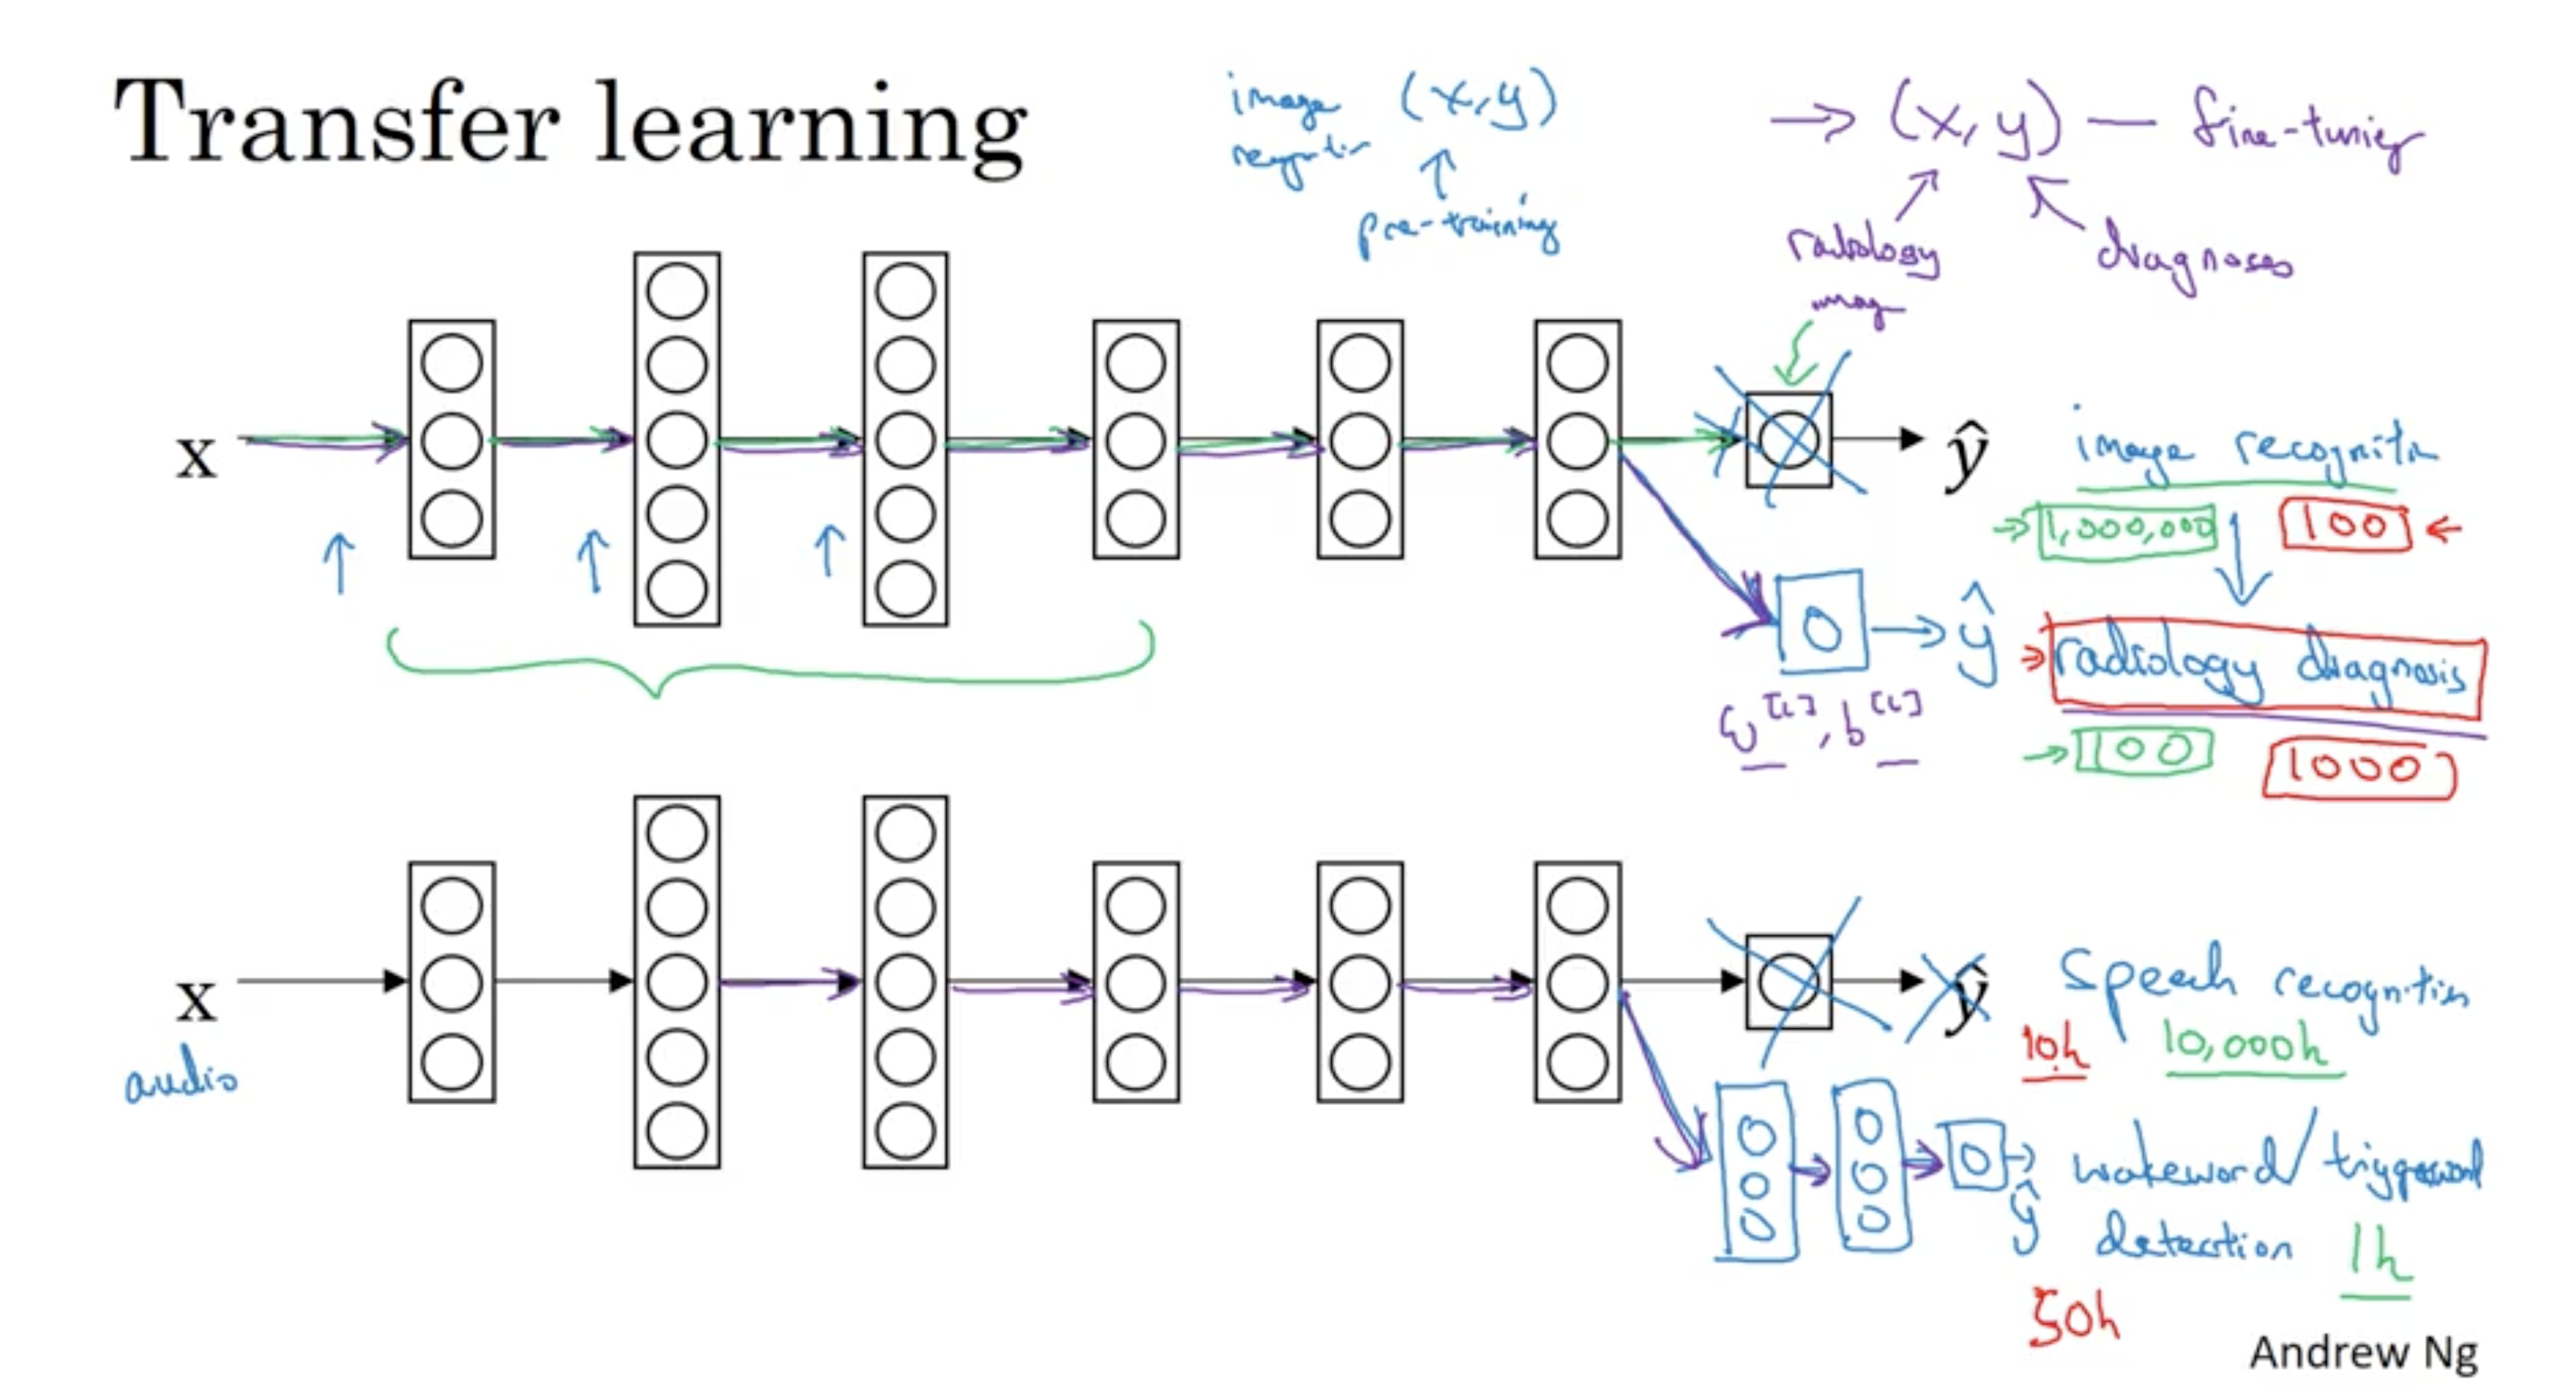 Transfer learning
image (x,y)
pre-training
→ (x, y) — fine-tuning
radiology
diagnoses
x
ŷ
image recognition
1,000,000 100
ŷ
radiology diagnosis
w[L], b[L]
100 1000
x
audio
ŷ
Speech recognition
10h 10,000h
ŷ
wakeword/triggerword
detection 1h
50h
Andrew Ng